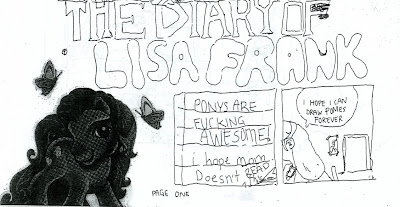 THE DIARY OF
LISA FRANK
PONYS ARE
FUCKING
AWESOME!
i hope mom
Doesn't READ
I HOPE I CAN
DRAW PONIES
FOREVER
PAGE ONE